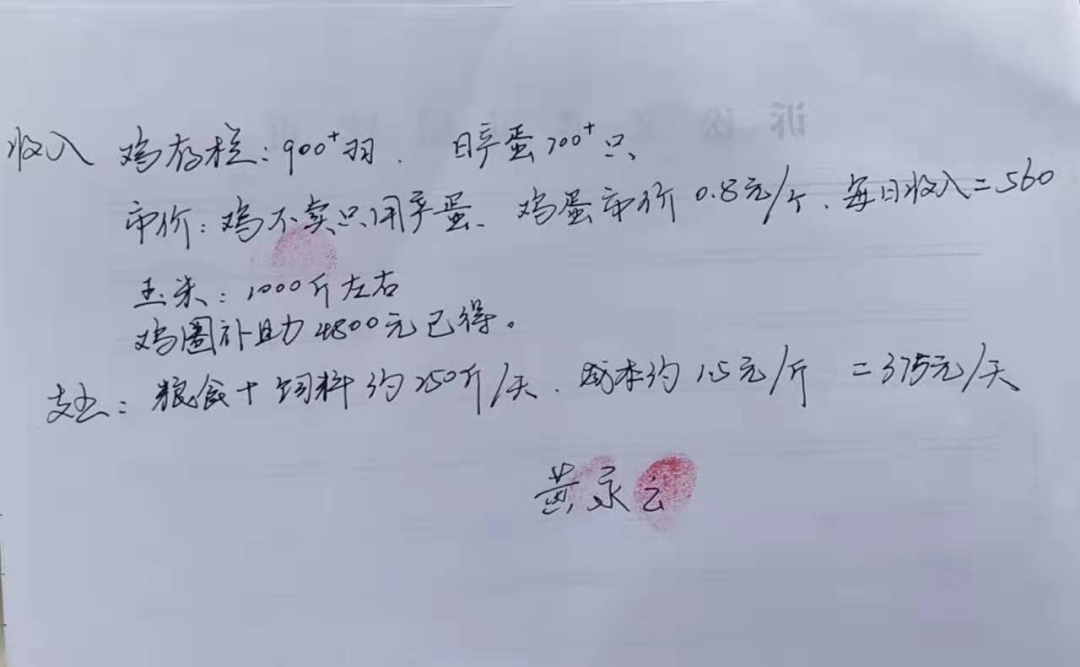 收入 鸡存栏：900⁺羽． 日产蛋700⁺只
市价：鸡不卖只用产蛋、鸡蛋市价0.8元/个、每日收入=560
玉米：1000斤左右
鸡圈补助4800元已得。
支出：粮食+饲料约250斤/天．成本约1.5元/斤 =375元/天
黄永云